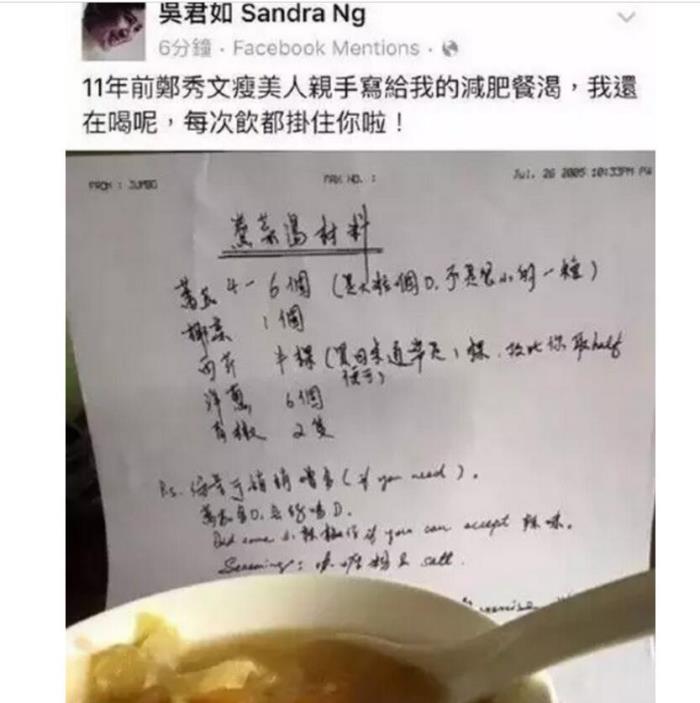 吳君如 Sandra Ng
6分鐘 · Facebook Mentions ·
11年前鄭秀文瘦美人親手寫給我的減肥餐渴，我還
在喝呢，每次飲都掛住你啦！
FROM : JUMBO FAX NO. : Jul. 26 2005 10:33PM
菜湯材料
蕃茄 4-6個 (是大粒個D,不是很小的一種)
椰菜 1個
西芹 半棵(買回來通常是1棵,故此你取half
便可)
洋蔥 6個
青椒 2隻
Ps. 份量可稍稍增多 (if you need).
蕃茄多D,會好喝D.
some 小辣椒仔 if you can accept 辣味.
Seasoning: 粉 & salt.